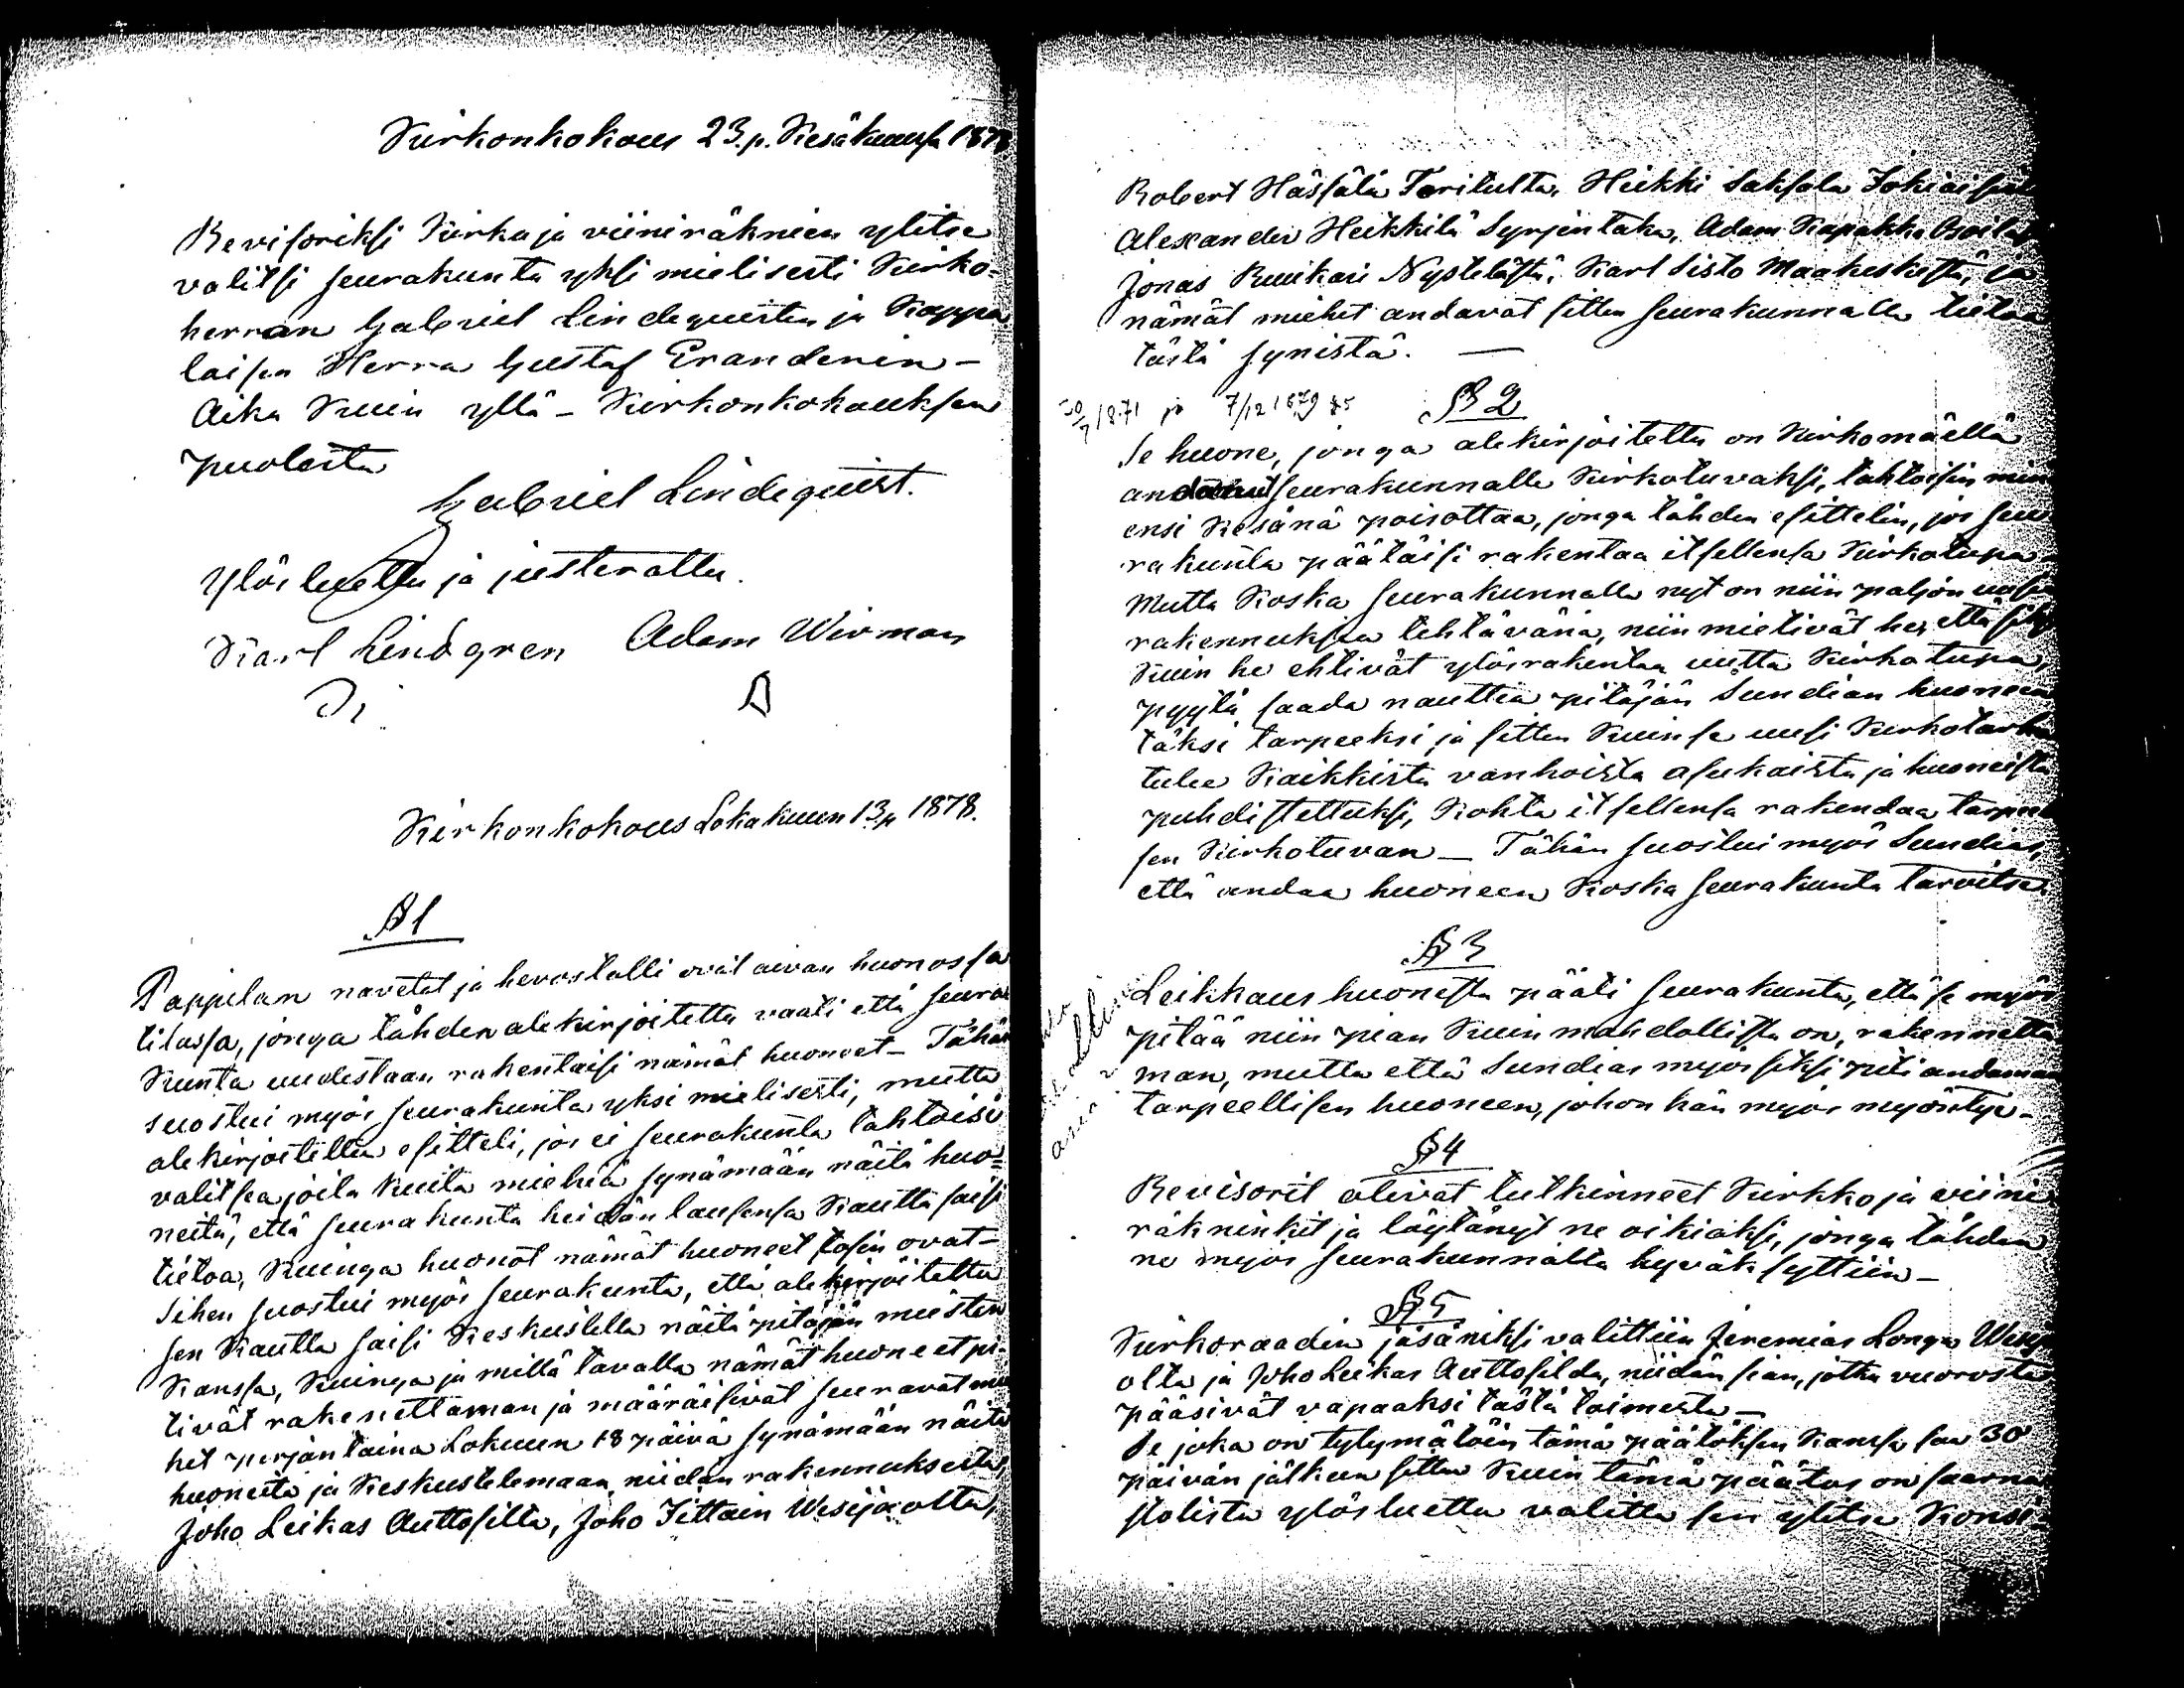 Kirkonkokous 23.p. Kesäkuussa 1878
Revisoriksi Kirko ja viiniräknien ylitse
valitsi seurakunta yksi mielisesti Kirko-
herran Gabriel Lindequistin ja Kappa
laisen Herra Gustaf Eranderin –
Aika Kuin yllä – Kirkonkokouksen
puolesta
Gabriel Lindequist.
Ylösluettu ja justerattu.
Karl Lindgren Adam Wirman
Kirkonkokous Lokakuun 13 p 1878.
§ 1
Pappilan navetat ja hevostalli ovat aivan huonossa
tilassa, jonga tähden alekirjoitettu vaati että seura
kunta uudestaan rakentaisi nämät huoneet – Tähän
suostui myös seurakunta yksi mielisesti, mutta
alekirjoitettu esitteli, jos ei seurakunta tahtoisi
valitsea joita kuita miehiä synämään näitä huo-
neitä, että seurakunta heidän lausensa Kautta saisi
tietoa, Kuinga huonot nämät huoneet tosin ovat –
Sihen suostui myös seurakunta, että alekirjoitettu
sen Kautta saisi Keskustella näitä pitäjän miesten
Kanssa, Kuinga ja millä tavalla nämät huoneet pi-
tivät rakenettaman ja määräisivät seuravat mie
het perjantaina Lokuun 18 päivä synämään näitä
huoneita ja Keskustelemaan niidän rakennuksesta,
Joho Leikas Auttosilta, Joho Jittain Wesijaolta,
Robert Hässälä Torilulta, Heikki Saksala Johiaisista
Alexander Heikkilä Syrjentaka, Adam Kapakka Osoila
Jonas Ruikari Nystelästä, Karl Sisto Maakeskestä, ja
nämät miehet andavat sitten seurakunnalle tietoa
tästä synistä. —
7/1871 ja 7/12 1879 §5
§ 2
Se huone, jonga alekirjoitettu on Kirkomäellä
seurakunnalle Kirkotuvaksi, tahtoisin minä
ensi Kesänä poisottaa, jonga tähden esittelin, jos seu
rakunta päätäisi rakentaa itsellensä Kirkotupa
Mutta Koska seurakunnalla nyt on niin paljon uusia
rakennuksia tehtävänä, niin mietivät he, että siksi
Kuin he ehtivät ylösrakentaa uutta Kirkotupa,
pyytä saada nauttia pitäjän Sundian huoneen
täksi tarpeeksi ja sitten Kuin se uusi Kirkotarha
tulee Kaikkista vanhoista asukaista ja huoneista
puhdistettuksi, Kohta itsellensä rakendaa tarpeel
sen Kirkotuvan – Tähän suostui myös Sundias,
että andaa huoneen Koska seurakunta tarvitse
§ 3
Leikkaus huonesta pääti seurakunta, että se myös
pitää niin pian Kuin mahdollista on, rakennetta
man, mutta että Sundias myös siksi piti andaman
tarpeellisen huoneen, johon hän myös myöntyi –
§ 4
Revisorit olivat tutkinneet Kirkko ja viini
räkninkit ja löytänyt ne oikiaksi, jonga tähden
ne myös seurakunnalta hyväksyttiin –
§ 5
Kirkoraadin jäsäniksi valittiin Jeremias Longa Wesij
olta ja Joho Leikas Auttosilda, niidän sian, jotka vuorosta
pääsivät vapaaksi tästä toimesta –
Se joka on tytymätöin tämä päätöksen Kanssa saa 30
päivän jälkeen sitten Kuin tämä päätös on saarna
stolista ylösluettu valitta sen ylitse Konsi-